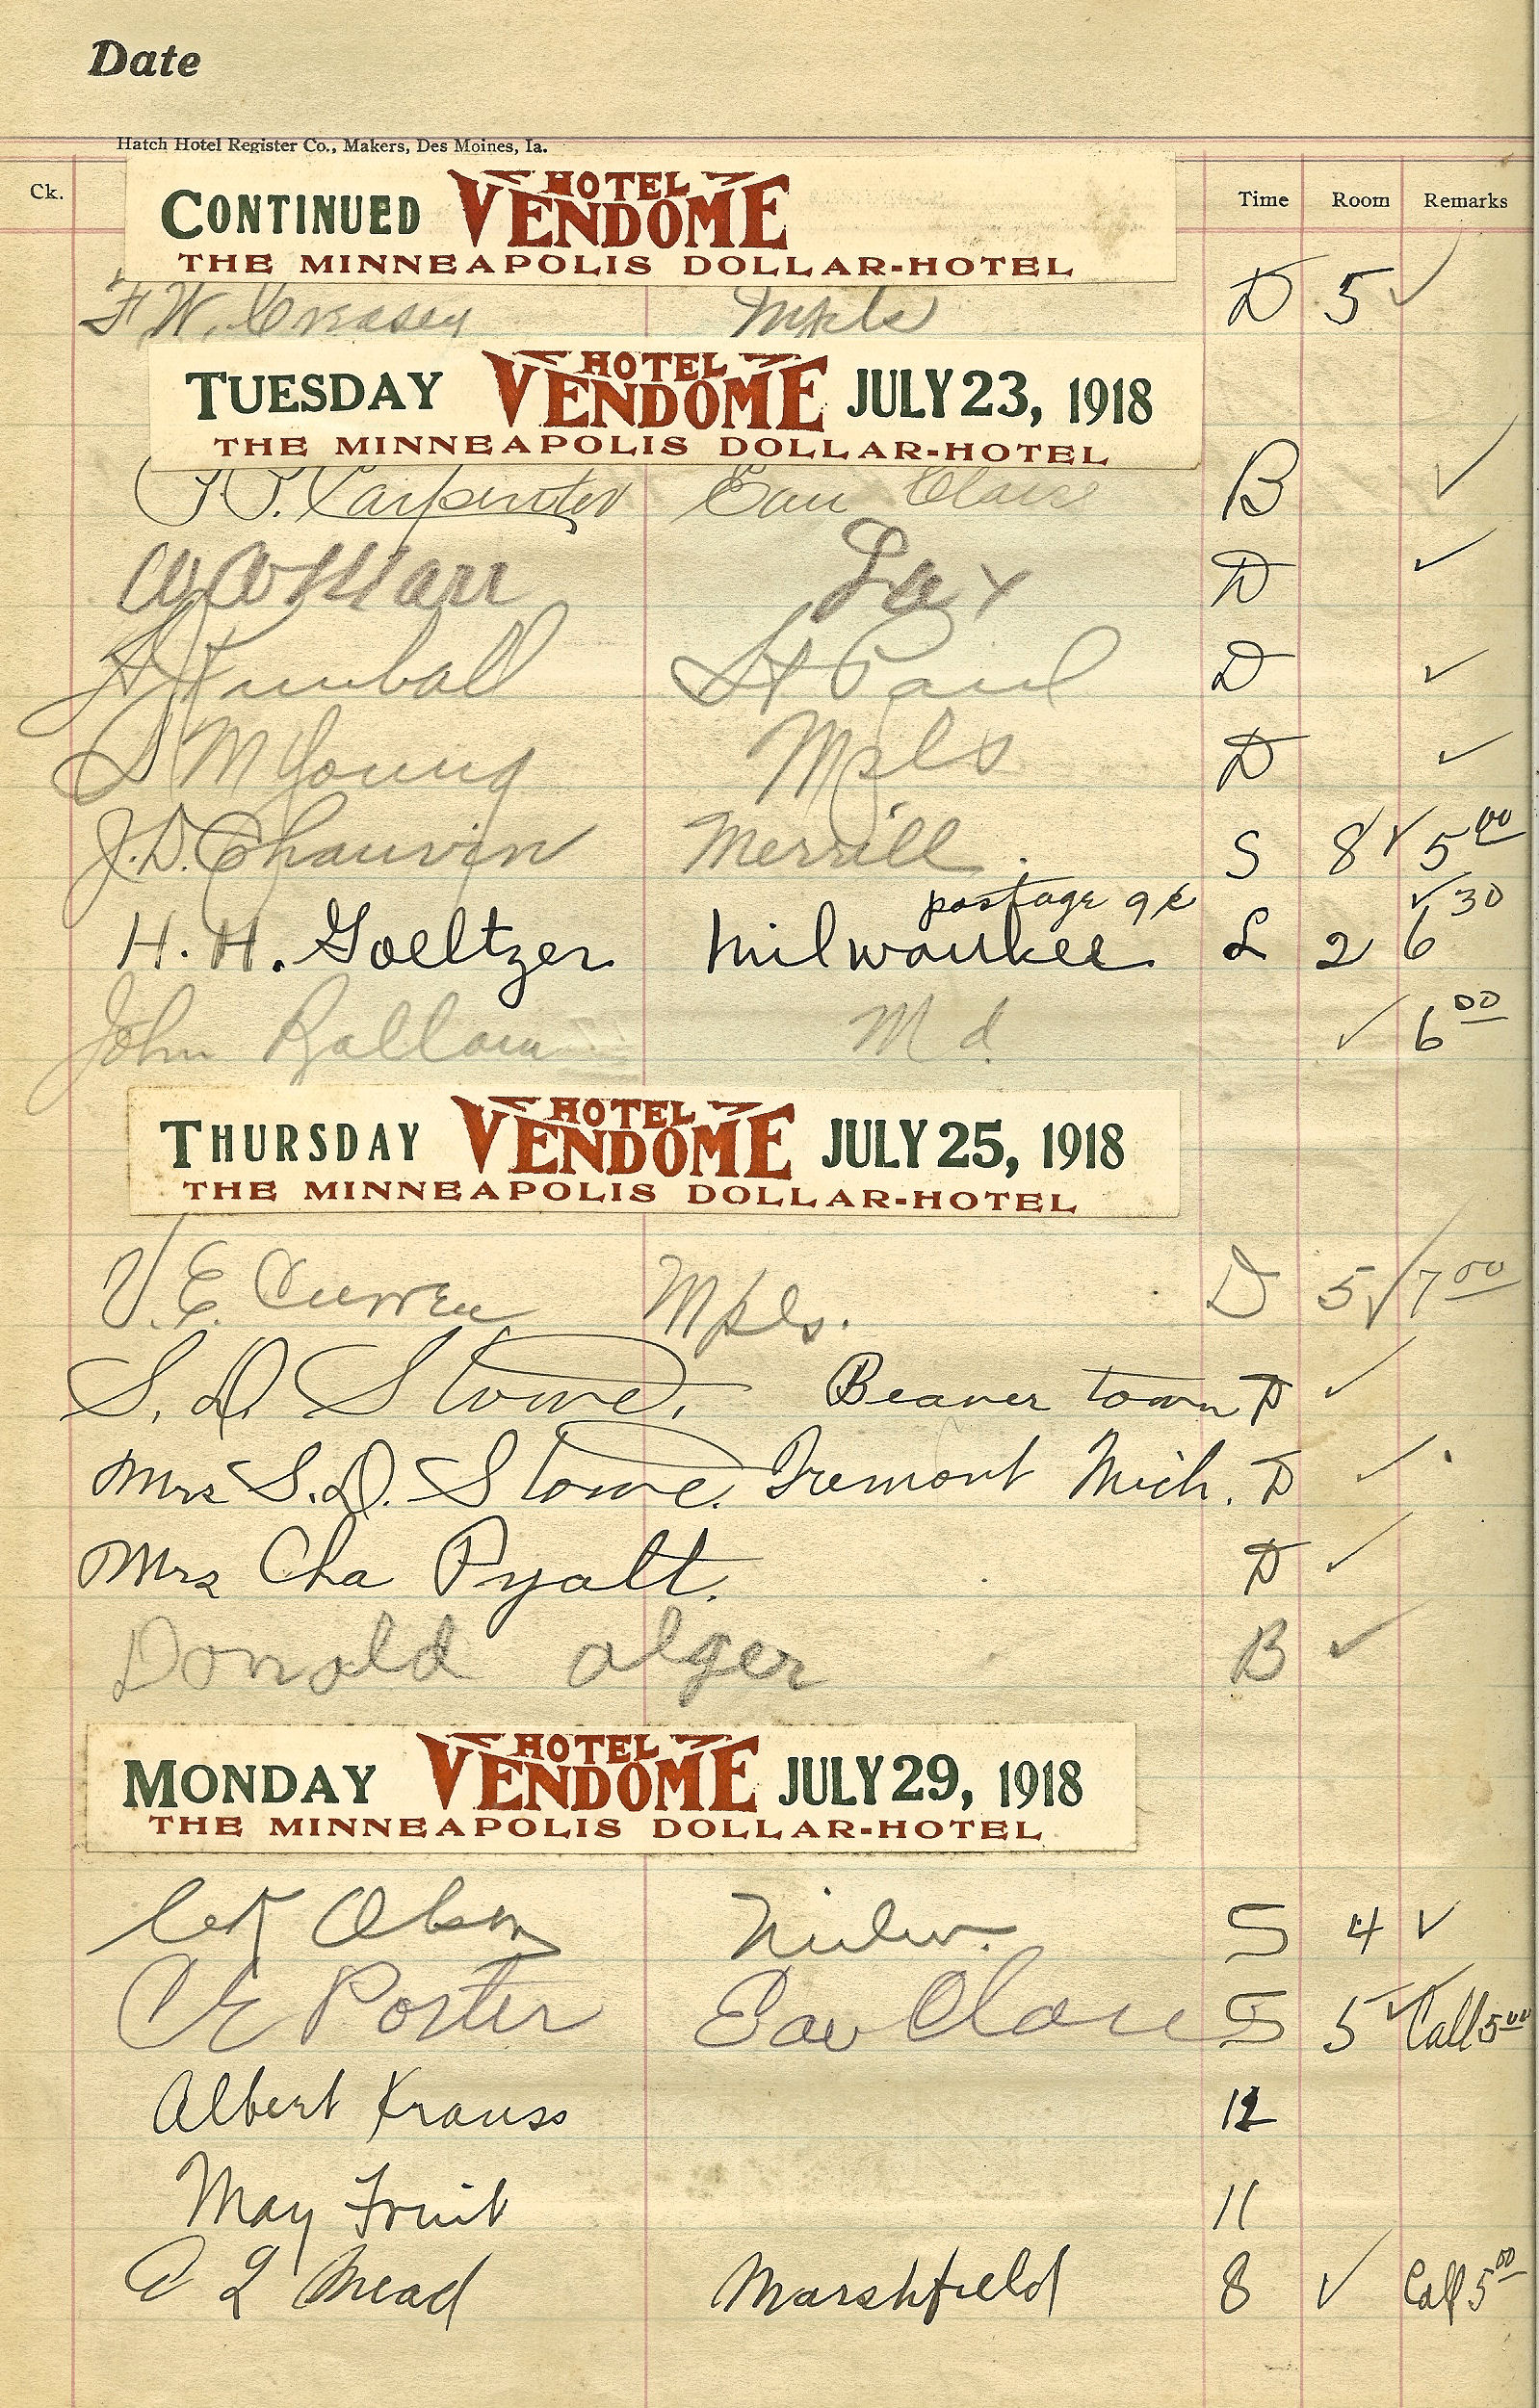 Date
Hatch Hotel Register Co., Makers, Des Moines, Ia.
Ck. Time Room Remarks
CONTINUED HOTEL VENDOME
THE MINNEAPOLIS DOLLAR-HOTEL
F W. Creasey Mpls D 5 ✓
TUESDAY HOTEL VENDOME JULY 23, 1918
THE MINNEAPOLIS DOLLAR-HOTEL
Carpenter Eau Claire B ✓
Marr D ✓
Kimball St Paul D ✓
S M Young Mpls D ✓
J. D. Chauvin Merrill. S 8 ✓ 5 00
postage 9¢ ✓ 30
H. H. Goeltzer. Milwaukee. L 2 6
John Md. ✓ 6 00
THURSDAY HOTEL VENDOME JULY 25, 1918
THE MINNEAPOLIS DOLLAR-HOTEL
V. E. Curren Mpls. D 5 ✓ 7 00
S. D. Stowe. Beaver town D ✓
Mrs S. D. Stowe. Fremont Mich. D ✓
Mrs Cha Pyatt. D ✓
Donald alger B ✓
MONDAY HOTEL VENDOME JULY 29, 1918
THE MINNEAPOLIS DOLLAR-HOTEL
Olson Milw. S 4 ✓
C E Porter Eau Claire S 5 ✓ Call 5 00
Albert Krauss 12
May Fruit 11
Mead Marshfield 8 ✓ Call 5 00